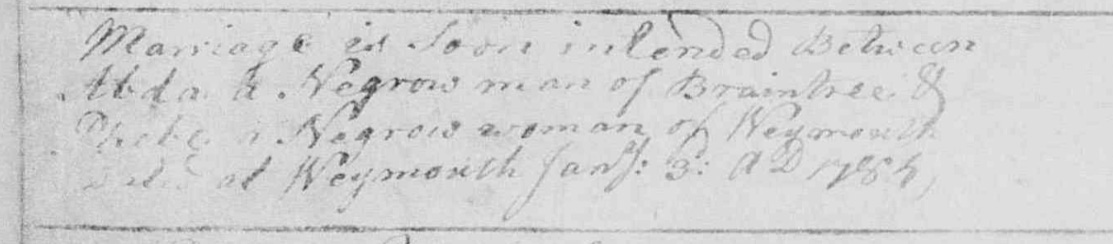 Marriage is Soon intended Between
Abda a Negrow man of Braintree &
Phebe a Negrow woman of Weymouth
Dated at Weymouth Jany: 3d: AD 1784,